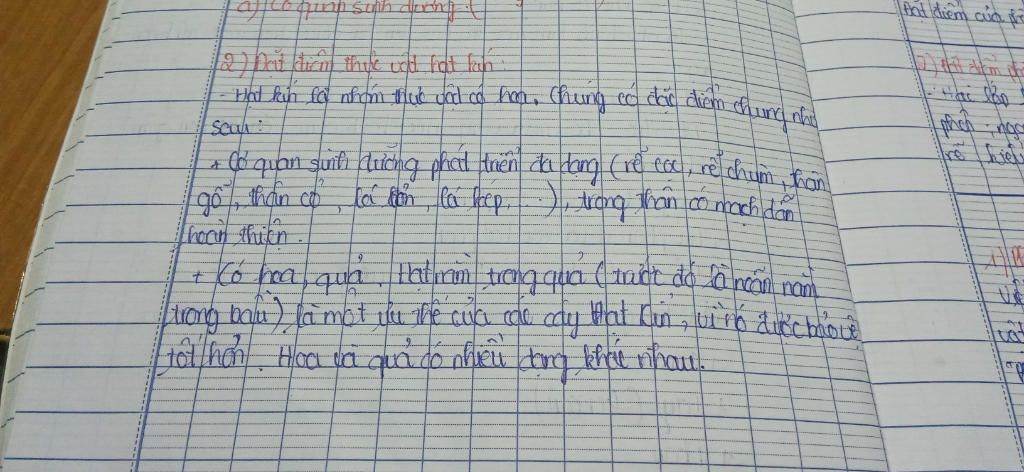 a) Cơ quan sinh dưỡng:
2) Đặc điểm thực vật hạt kín:
- Hạt kín là nhóm thực vật có hoa. Chúng có đặc điểm chung như
sau:
+ Cơ quan sinh dưỡng phát triển đa dạng (rễ cọc, rễ chùm, thân
gỗ, thân cỏ, lá đơn, lá kép, ...), trong thân có mạch dẫn
hoàn thiện.
+ Có hoa, quả. Hạt nằm trong quả (trước đó là noãn nằm
trong bầu) là một ưu thế của các cây Hạt kín, vì nó được bảo vệ
tốt hơn. Hoa và quả có nhiều dạng khác nhau.
đặc điểm của
- Hai
phấn
rễ
1)